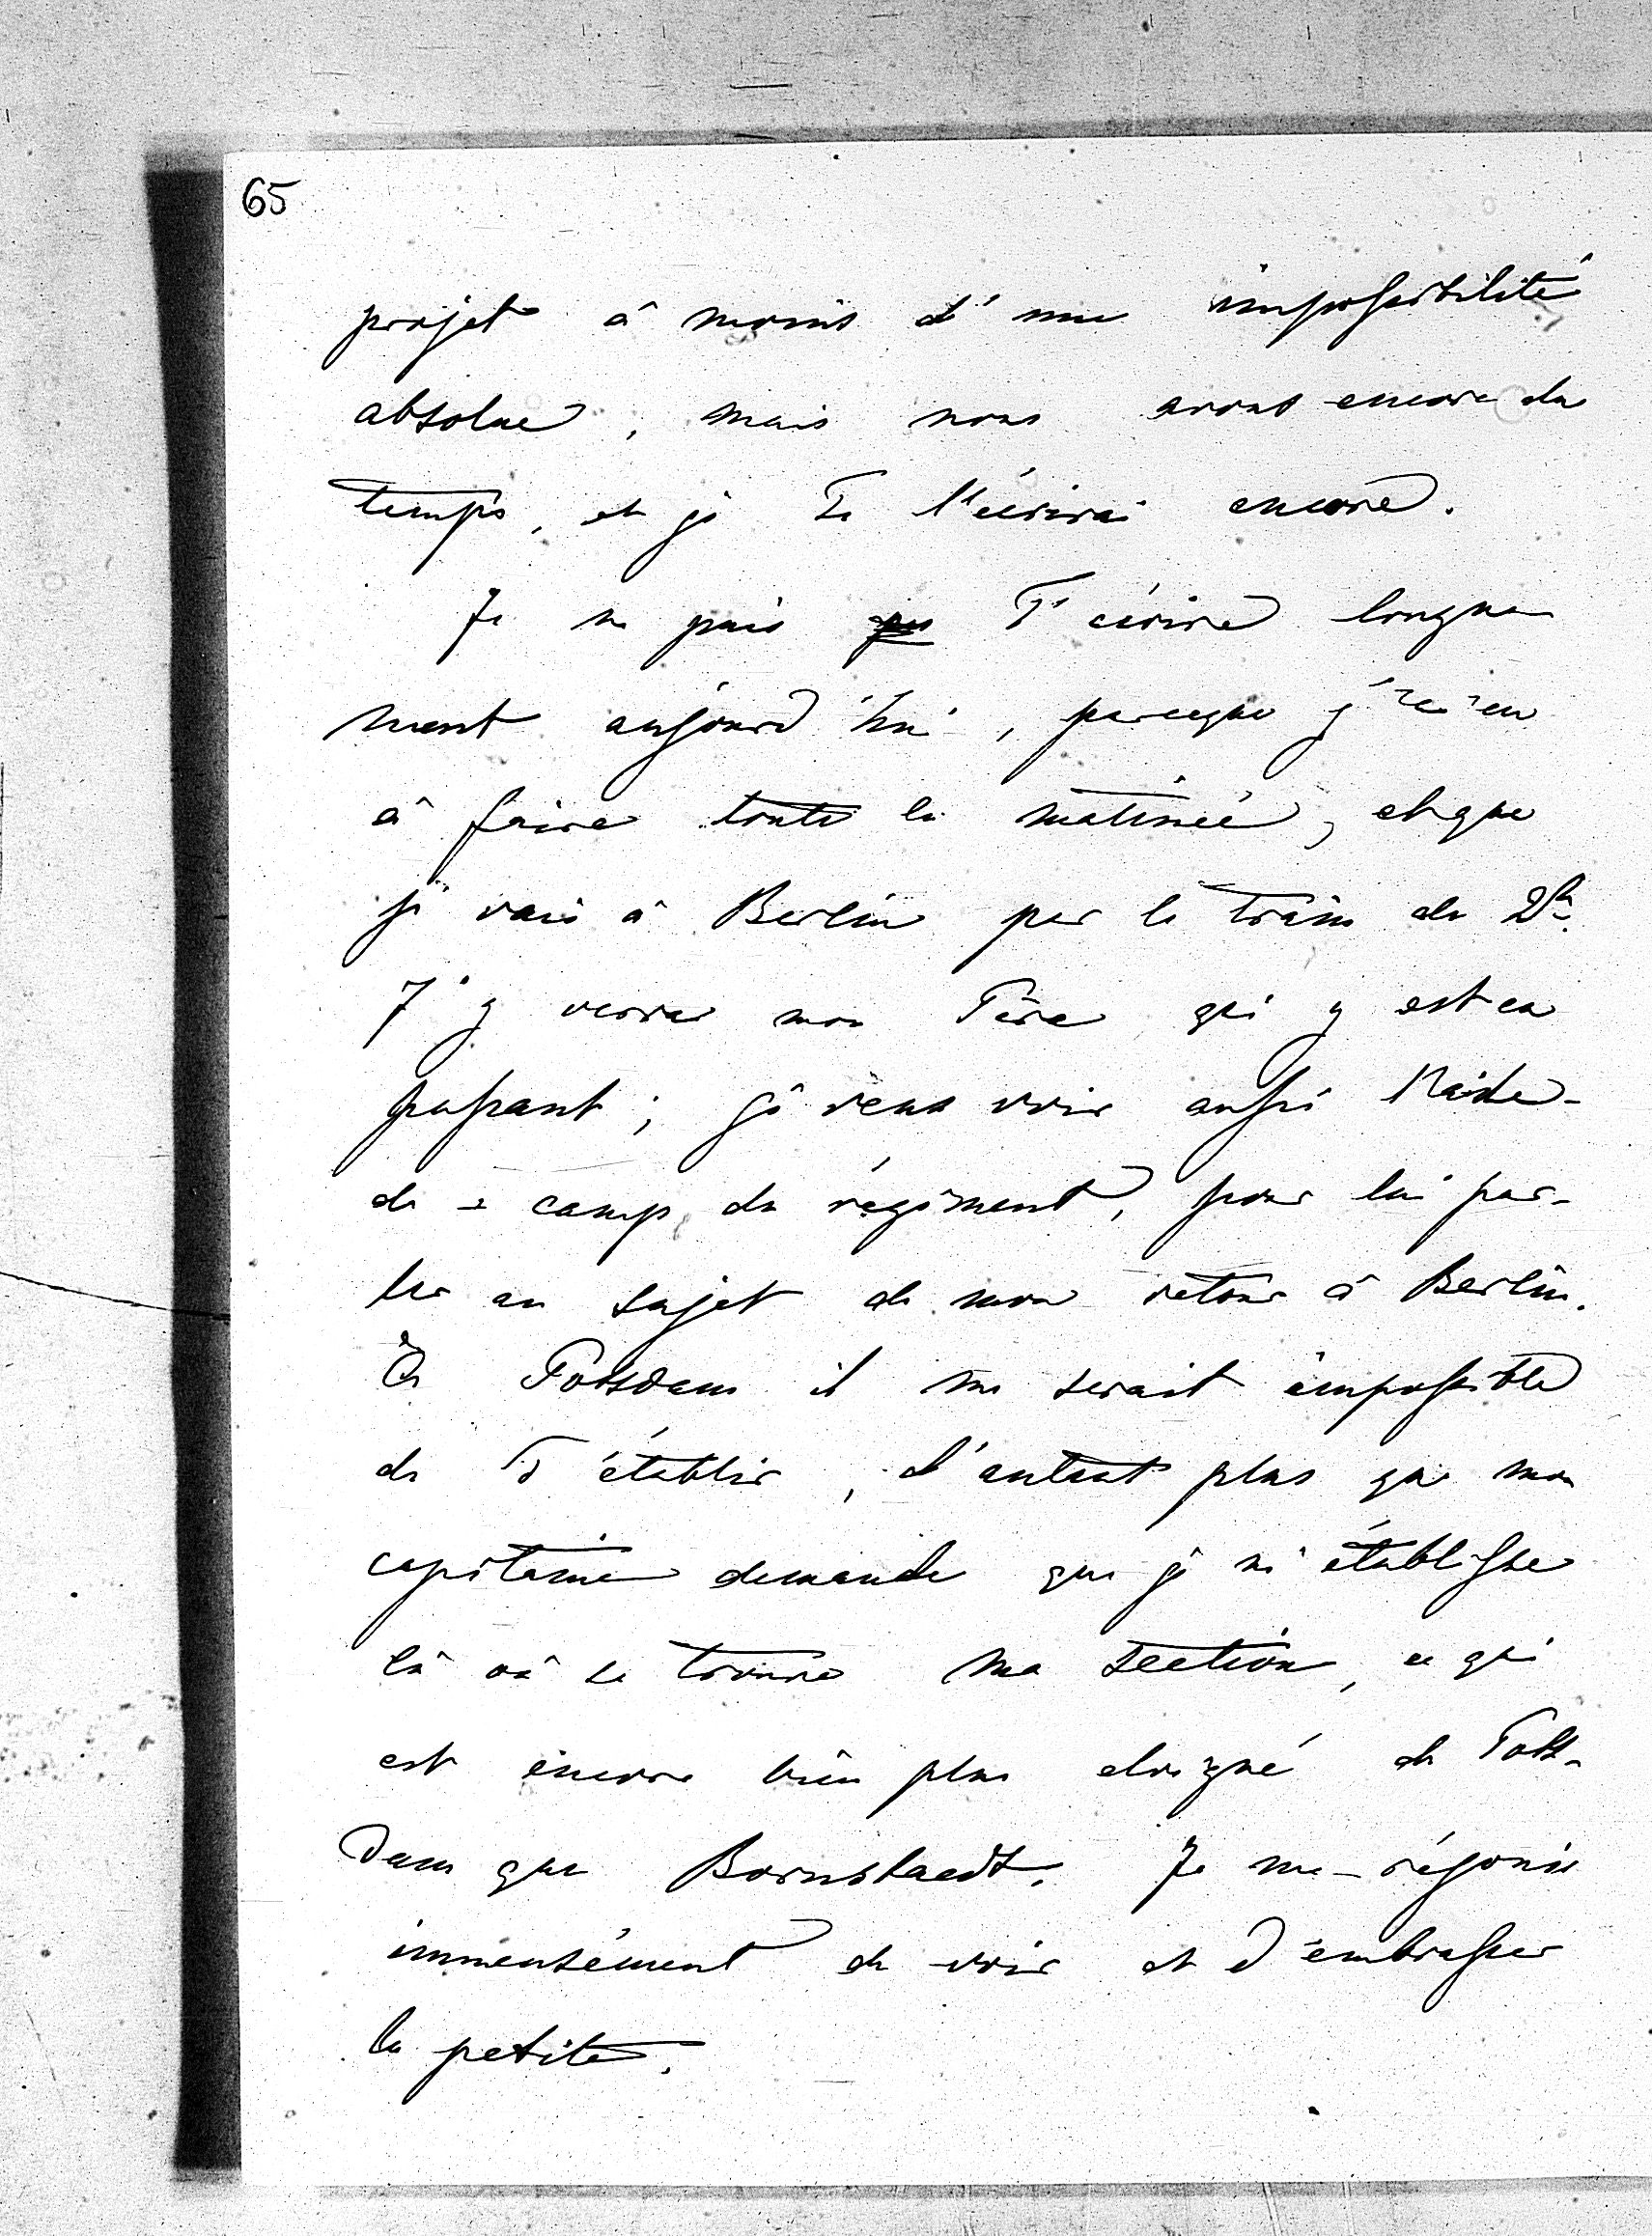 65
projet à moins d'une impossibilité
absolue, mais nous avons encore du
temps, et je Te l'écrirai encore.
Je ne puis pas T'écrire longue
ment aujourd'hui, parceque j'ai eu
à faire toute la matinée, et que
je vais à Berlin par le train de 2h.
J'y verrai mon Père qui y est en
passant; je veux voir aussi l'aide-
de-camp du régiment, pour lui par-
ler au sujet de mon retour à Berlin.
À Potsdam il me serait impossible
de T'établir, d'autant plus que mon
capitaine demande que je m'établisse
là où se trouve ma section, ce qui
est encore bien plus eloigné de Pots-
dam que Bornstaedt. Je me réjouis
immensément de voir et d'embrasser
la petite.